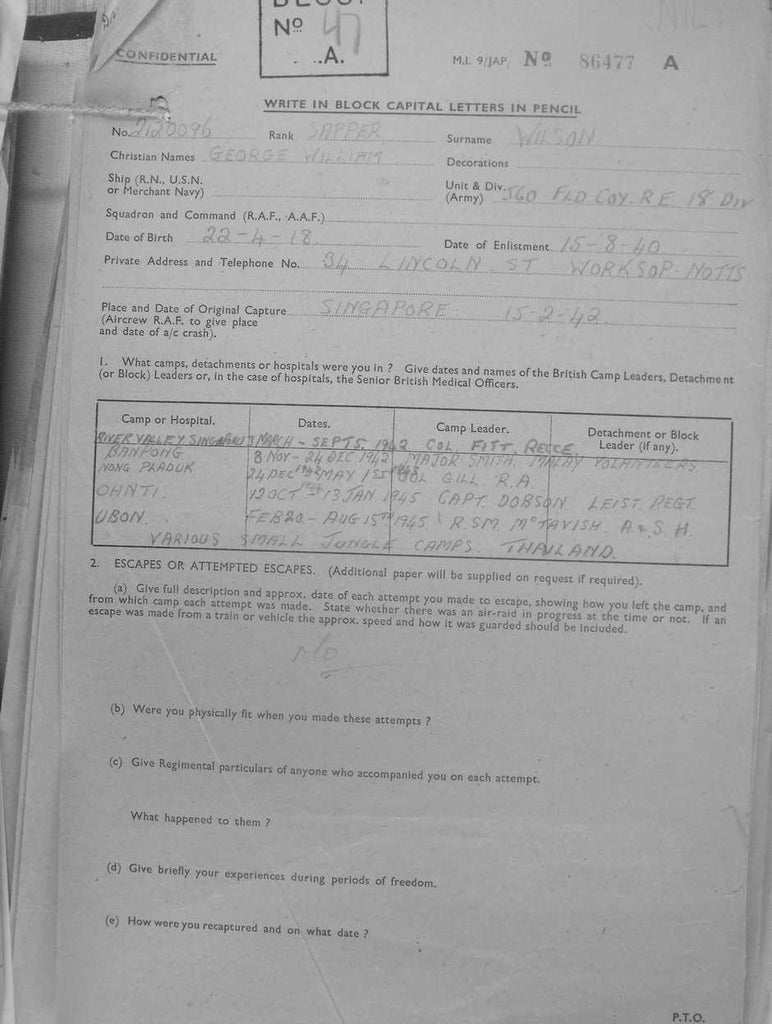 Nº 47
A.
NIL.
CONFIDENTIAL
M.I. 9/JAP. Nº 86477 A
WRITE IN BLOCK CAPITAL LETTERS IN PENCIL
No. 2120096 Rank SAPPER Surname WILSON
Christian Names GEORGE WILLIAM Decorations
Ship (R.N., U.S.N. or Merchant Navy)
Unit & Div. (Army) 560 FLD COY. R E 18 DIV
Squadron and Command (R.A.F., A.A.F.)
Date of Birth 22-4-18 Date of Enlistment 15-8-40
Private Address and Telephone No. 34 LINCOLN ST WORKSOP NOTTS
Place and Date of Original Capture SINGAPORE 15-2-42
(Aircrew R.A.F. to give place
and date of a/c crash).
1. What camps, detachments or hospitals were you in ? Give dates and names of the British Camp Leaders, Detachment
(or Block) Leaders or, in the case of hospitals, the Senior British Medical Officers.
Camp or Hospital. Dates. Camp Leader. Detachment or Block Leader (if any).
RIVER VALLEY SINGAPORE MARCH - SEPT 5, 1942 COL FITT, RECCE
BANPONG 8 NOV - 24 DEC 1942 MAJOR SMITH. MALAY VOLANTEERS
NONG PRADUK 24 DEC MAY 1ST COL GILL. R.A.
OHNTI. 12 OCT - 13 JAN 1945 CAPT. DOBSON LEIST REGT.
UBON. FEB 20 - AUG 15TH 1945 R.SM. McTAVISH. A & S. H.
VARIOUS SMALL JUNGLE CAMPS. THAILAND.
2. ESCAPES OR ATTEMPTED ESCAPES. (Additional paper will be supplied on request if required).
(a) Give full description and approx. date of each attempt you made to escape, showing how you left the camp, and
from which camp each attempt was made. State whether there was an air-raid in progress at the time or not. If an
escape was made from a train or vehicle the approx. speed and how it was guarded should be included.
No
(b) Were you physically fit when you made these attempts ?
(c) Give Regimental particulars of anyone who accompanied you on each attempt.
What happened to them ?
(d) Give briefly your experiences during periods of freedom.
(e) How were you recaptured and on what date ?
P.T.O.